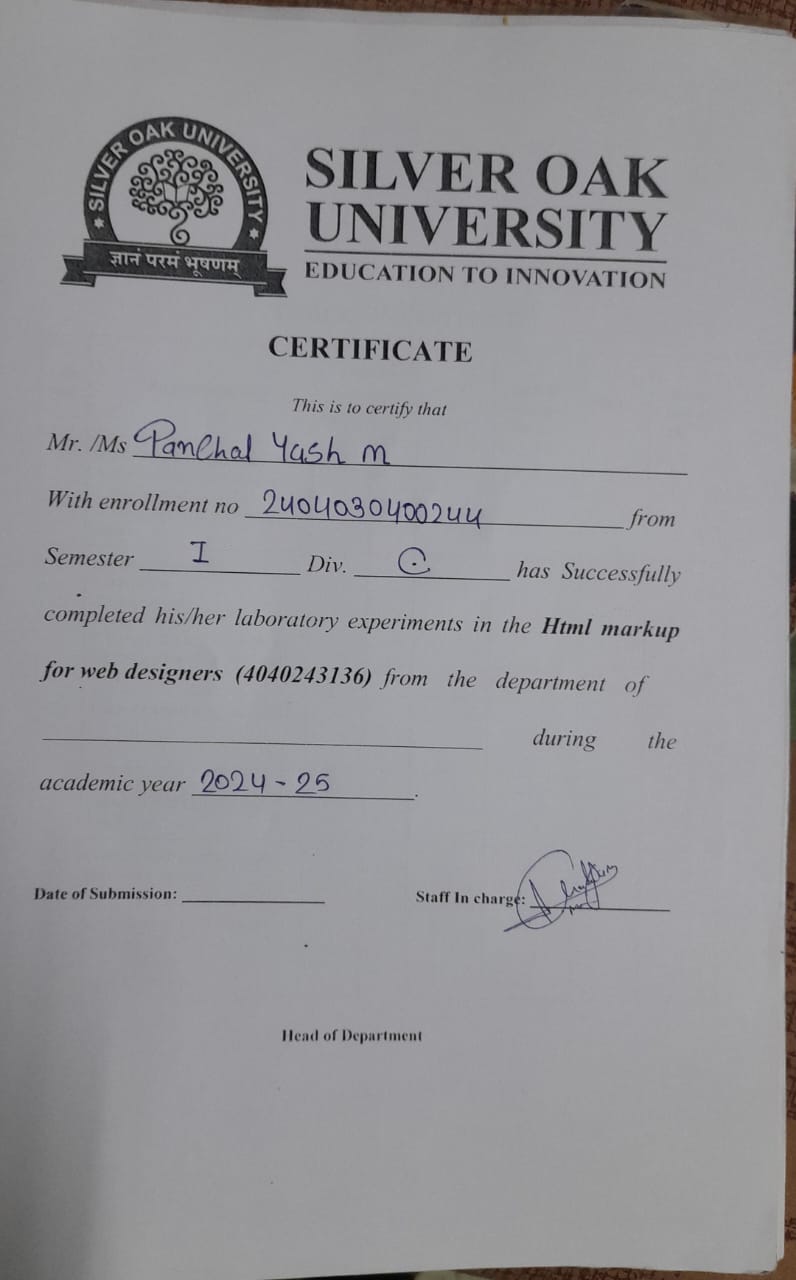 SILVER OAK UNIVERSITY
ज्ञानं परमं भूषणम्
SILVER OAK
UNIVERSITY
EDUCATION TO INNOVATION
CERTIFICATE
This is to certify that
Mr. /Ms Panchal Yash M
With enrollment no 2404030400244 from
Semester I Div. C has Successfully
completed his/her laboratory experiments in the Html markup
for web designers (4040243136) from the department of
during the
academic year 2024-25.
Date of Submission: Staff In charge:
Head of Department